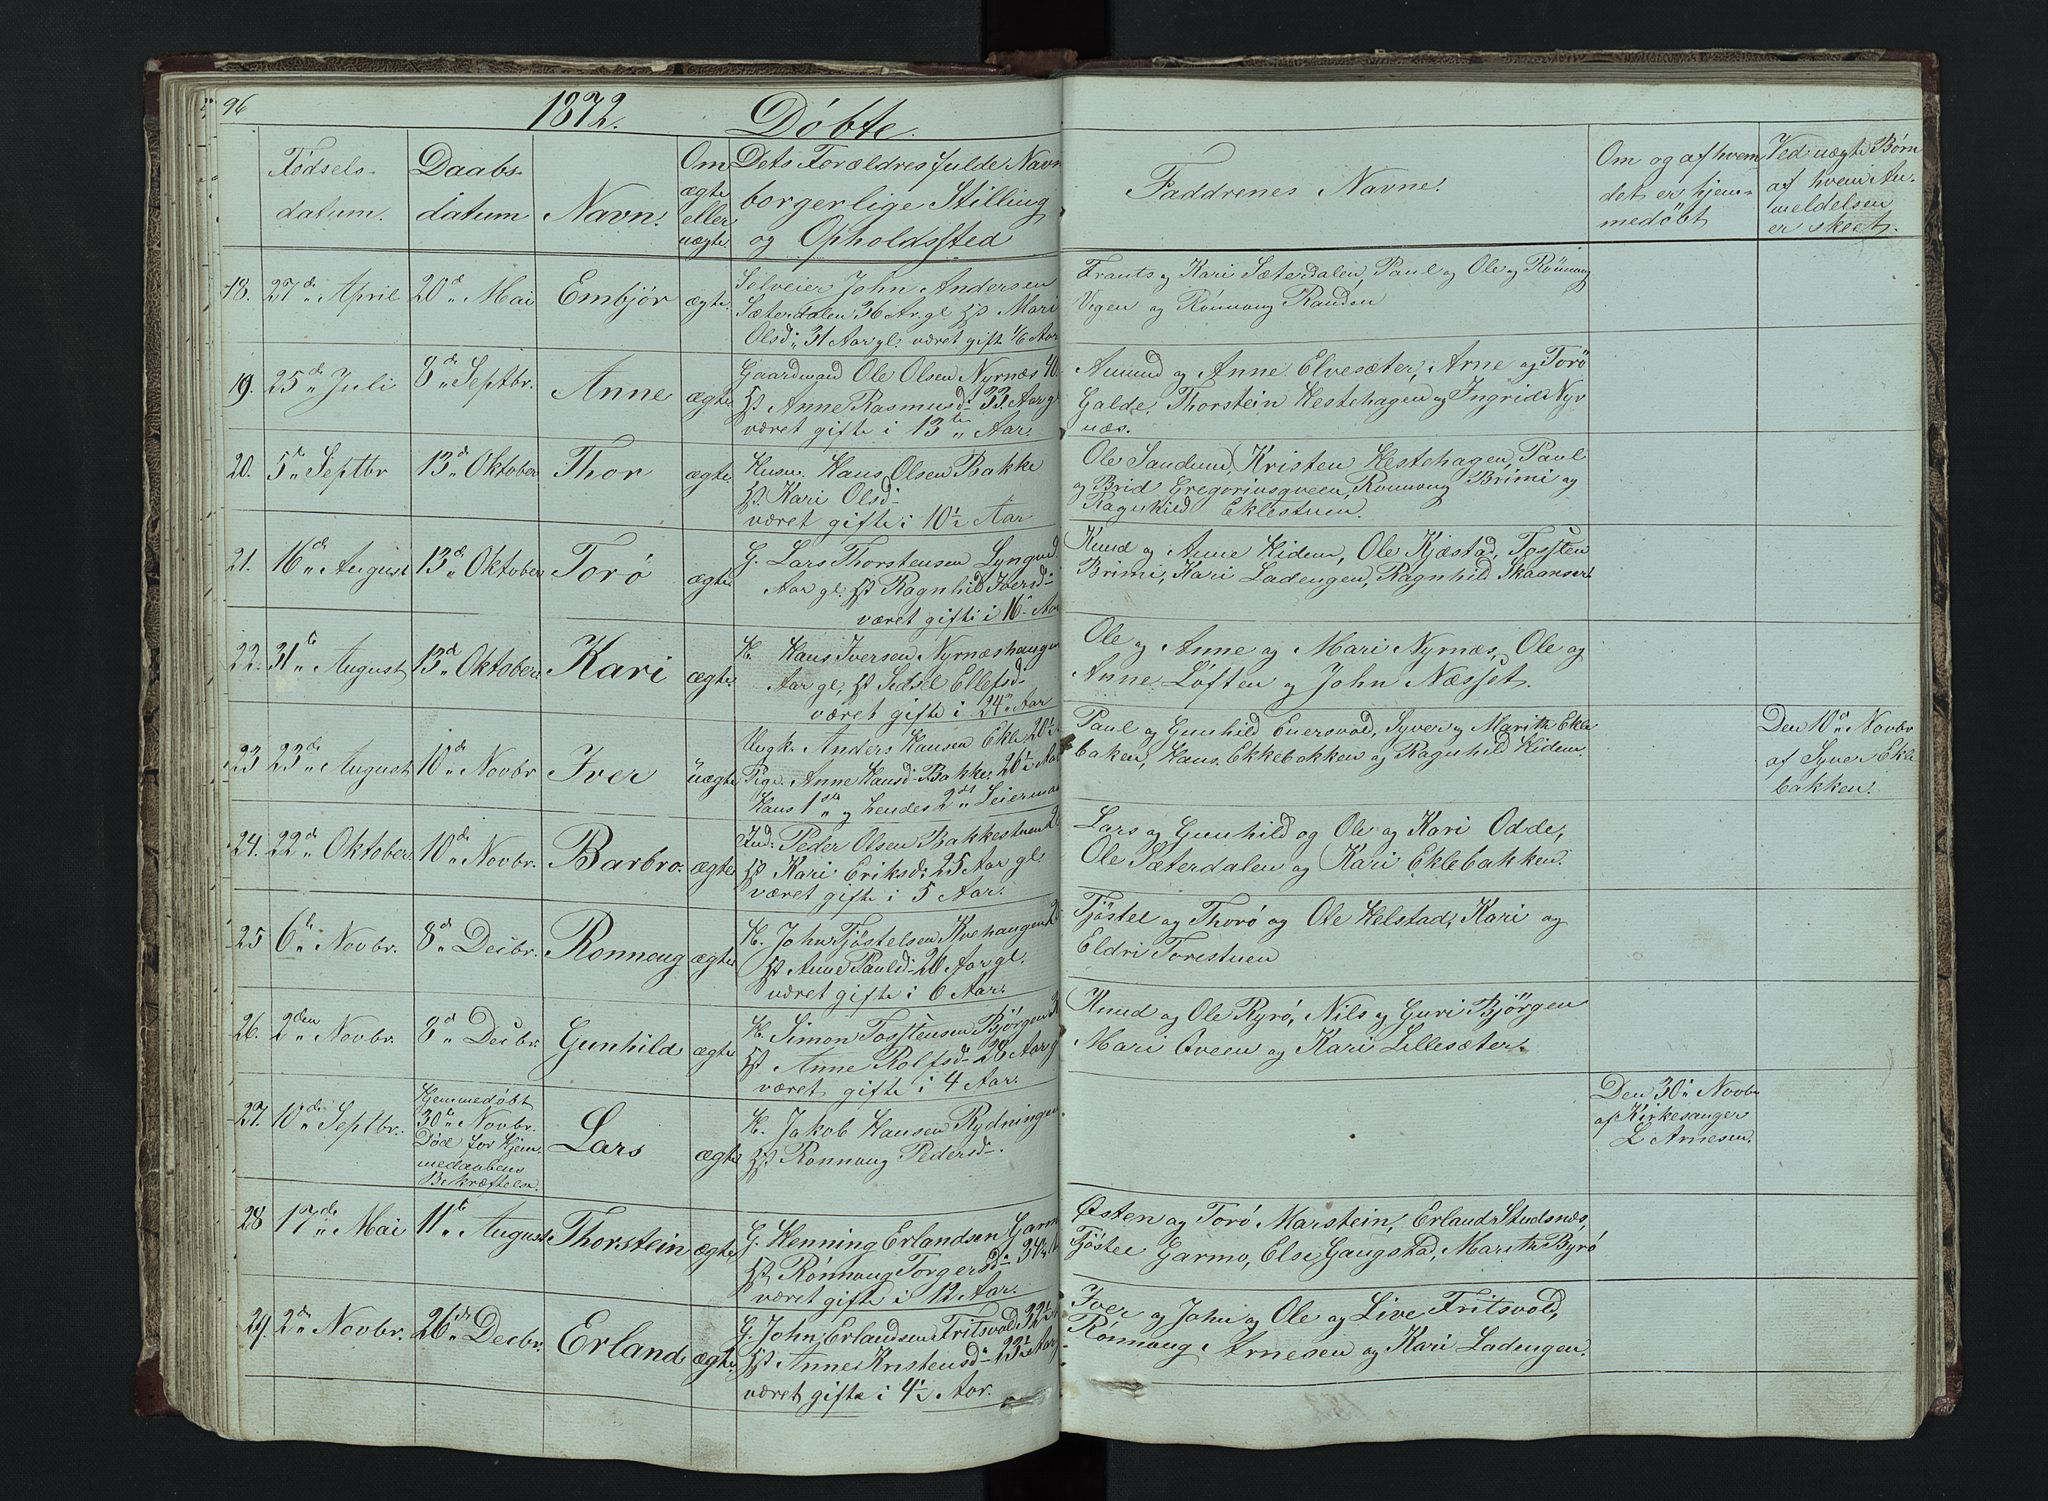 96
1872. Döbte.
Födsels-
datum.
Daabs-
datum
Navn.
Om
ægte
eller
uægte
Dets Forældres fulde Navn
borgerlige Stilling
og Opholdssted
Faddrenes Navne.
Om og af hvem
det er hjem-
medöbt
Ved uægte Börn
af hvem An-
meldelsen
er skeet.
18. 27d April 20d Mai Embjör ægte.
Selveier John Andersen
Sæterdalen 36 Ar. gl Hst Mari
Olsd: 31 Aar gl. været gift 1/6 Aar
Frants og Kari Sæterdalen, Paul og Ole og Rönnog
Vigen og Rönnoug Randen
19. 25de Juli 8de Septbr. Anne ægte
Gaardmand Ole Olsen Nyrnæs 40
Hst Anne Rasmusd: 33 Aar gl
været gifte i 13te Aar.
Amund og Anne Elvesæter, Arne og Torö
Galde, Thorstein Hestehagen og Ingrid Nyr
næs.
20. 5de Septbr 13d Oktober Thor ægte
Husm. Hans Olsen Bakke
Hst. Kari Olsd:
været gifte i 10½ Aar
Ole Sandum, Kristen Hestehagen, Paul
og Brid Gregoriusqveen, Ronnoug Brimi og
Ragnhild Eklestuen.
21. 16de August 13de Oktober Torö ægte
G. Lars Thorstensen Lyngved
Aar gl, Hst Ragnhild Iversd:
været gifte i 16 Aar
Knud og Anne Hidem, Ole Kjæstad, Tosten
Brimi, Kari Ladengen, Ragnhild Skaanser
22. 31te August 13d Oktober Kari ægte
H. Hans Iversen Nyrnæshaugen
Aar gl, Hst Sidsel Ellefsd:
været gifte i 24 Aar
Ole og Anne og Mari Nyrnæs, Ole og
Anne Löften og John Næsset.
23 23de August 10de Novbr Iver uægte
Ungk. Anders Hansen Ekle 20½
Pige Anne Hansd: Bakke 26½ Aar
Hans 1ste og hendes 2det Leiermaal
Paul og Gunhild Enersvold, Syver og Marith Ekle
baken, Hans Ekkebakken og Ragnhild Hidem.
Den 10de Novbr
af Syver Ekle
bakken.
24. 22de Oktober 10de Novbr. Barbro. ægte
Ind: Peder Olsen Bakkestuen 2
Hst Kari Eriksd: 25 Aar gl.
været gifte i 5 Aar.
Lars og Gunhild og Ole og Kari Odde,
Ole Sæterdalen og Kari Eklebakken.
25 6te Novbr. 8d Decbr. Ronnoug ægte
H. John Tjöstelsen Kvehaugen 2
Hst Anne Paulsd: 20 Aar gl.
været gifte i 6 Aar.
Tjöstel og Thorö og Ole Helstad, Kari og
Eldri Torestuen
26. 2den Novbr. 8d Decbr. Gunhild ægte
H. Simon Tosstensen Bjørgen 3
Hst Anne Rolfsd: 28 Aar g
været gifte i 4 Aar.
Knud og Ole Ryrö, Nils og Guri Bjørgen
Mari Qveen og Kari Lillesæter.
27. 10de Septbr. Hjemmedøbt
30te Novbr.
Död for Hjem-
medaabens
Bekræftelse.
Lars ægte
H. Jakob Hansen Rydningen
Hst Ronnoug Pedersd:
Den 30te Novbr
af Kirkesanger
L Arnesen.
28 17de Mai 11te August Thorstein ægte
G. Henning Erlandsen Garmo
Hst Rönnoug Torgersd: 34½
været gifte i 12 Aar.
Østen og Torö Marstein, Erland Studsnæs,
Tjöstel Garmo, Else Gaugstad, Marith Byrö
29. 2de Novbr. 26de Decbr. Erland ægte.
G. John Erlandsen Fritsvold 32½
Hst Anne Kristensd: 23½ Aar g
været gifte i 4½ Aar.
Iver og John og Ole og Live Fritsvold,
Rönnoug Arnesen og Kari Ladengen.